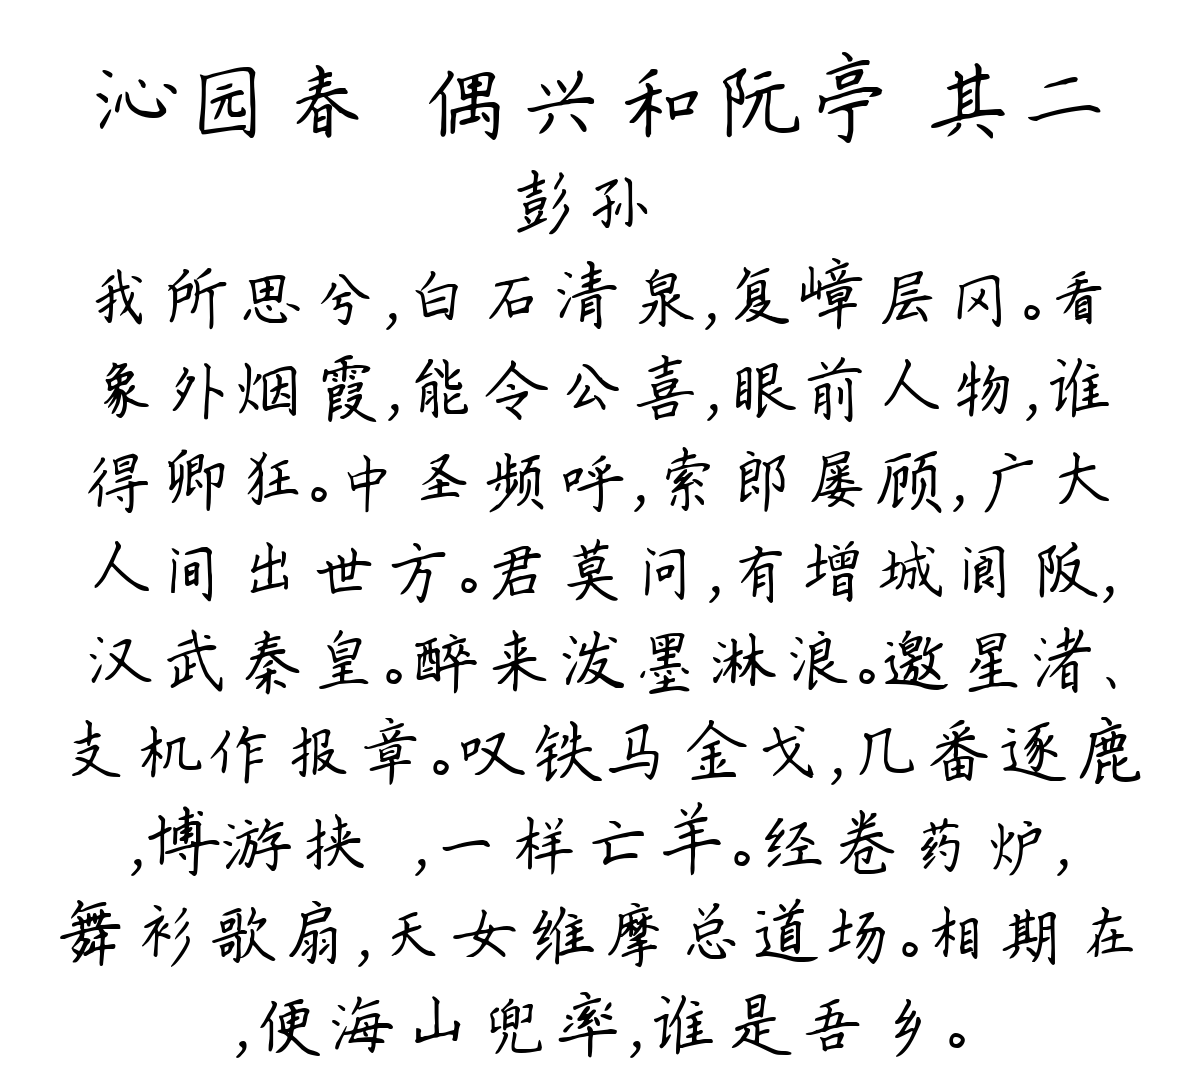 沁园春 偶兴和阮亭 其二
彭孙
我所思兮,白石清泉,复嶂层冈。看
象外烟霞,能令公喜,眼前人物,谁
得卿狂。中圣频呼,索郎屡顾,广大
人间出世方。君莫问,有增城阆阪,
汉武秦皇。醉来泼墨淋浪。邀星渚、
支机作报章。叹铁马金戈,几番逐鹿
,博游挟 ,一样亡羊。经卷药炉,
舞衫歌扇,天女维摩总道场。相期在
,便海山兜率,谁是吾乡。